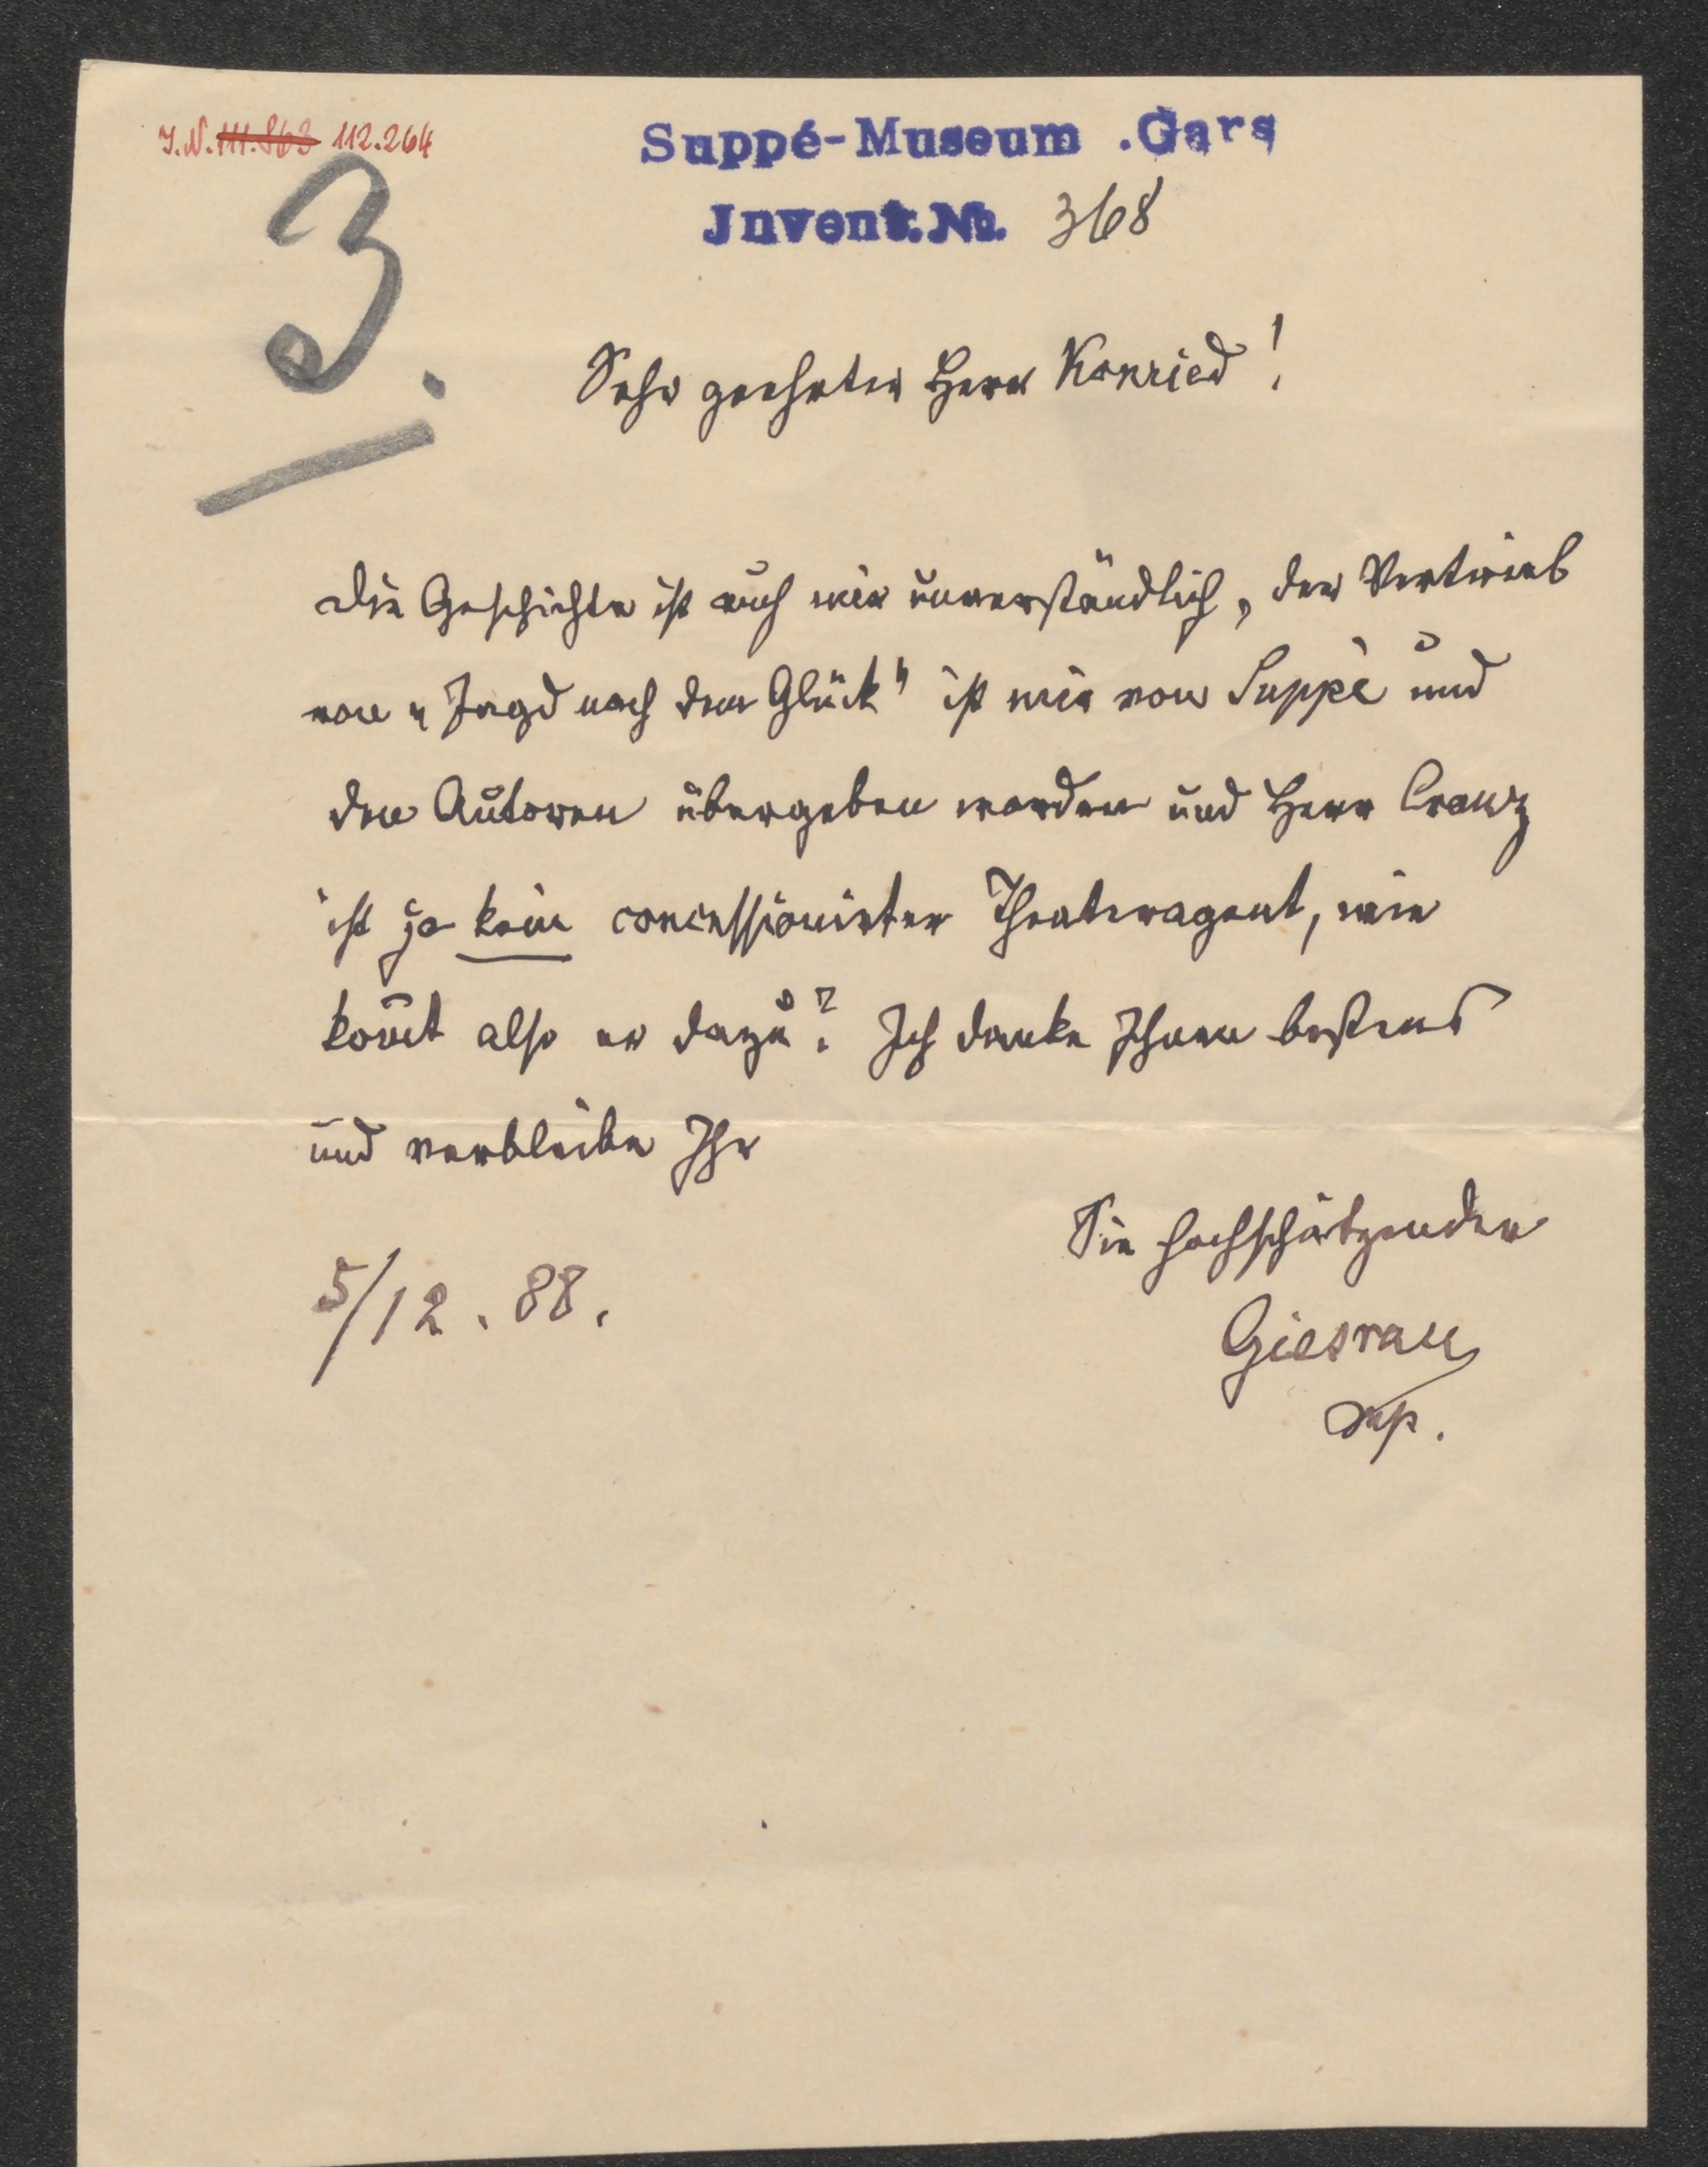 J.N. 111.863 112.264
Suppé-Museum .Gars
Jnvent.No. 368
3.
Sehr geehrter Herr Konried!
Die Geschichte ist auch mir unverständlich, der Vertrieb
von „Jagd nach dem Glück" ist mir von Suppè und
den Autoren übergeben worden und Herr Cranz
ist ja kein concessionirter Theateragent, wie
kom̄t also er dazu? Ich danke Ihnen bestens
und verbleibe Ihr
Sie hochschätzender
5/12. 88.
Giesrau
mp.